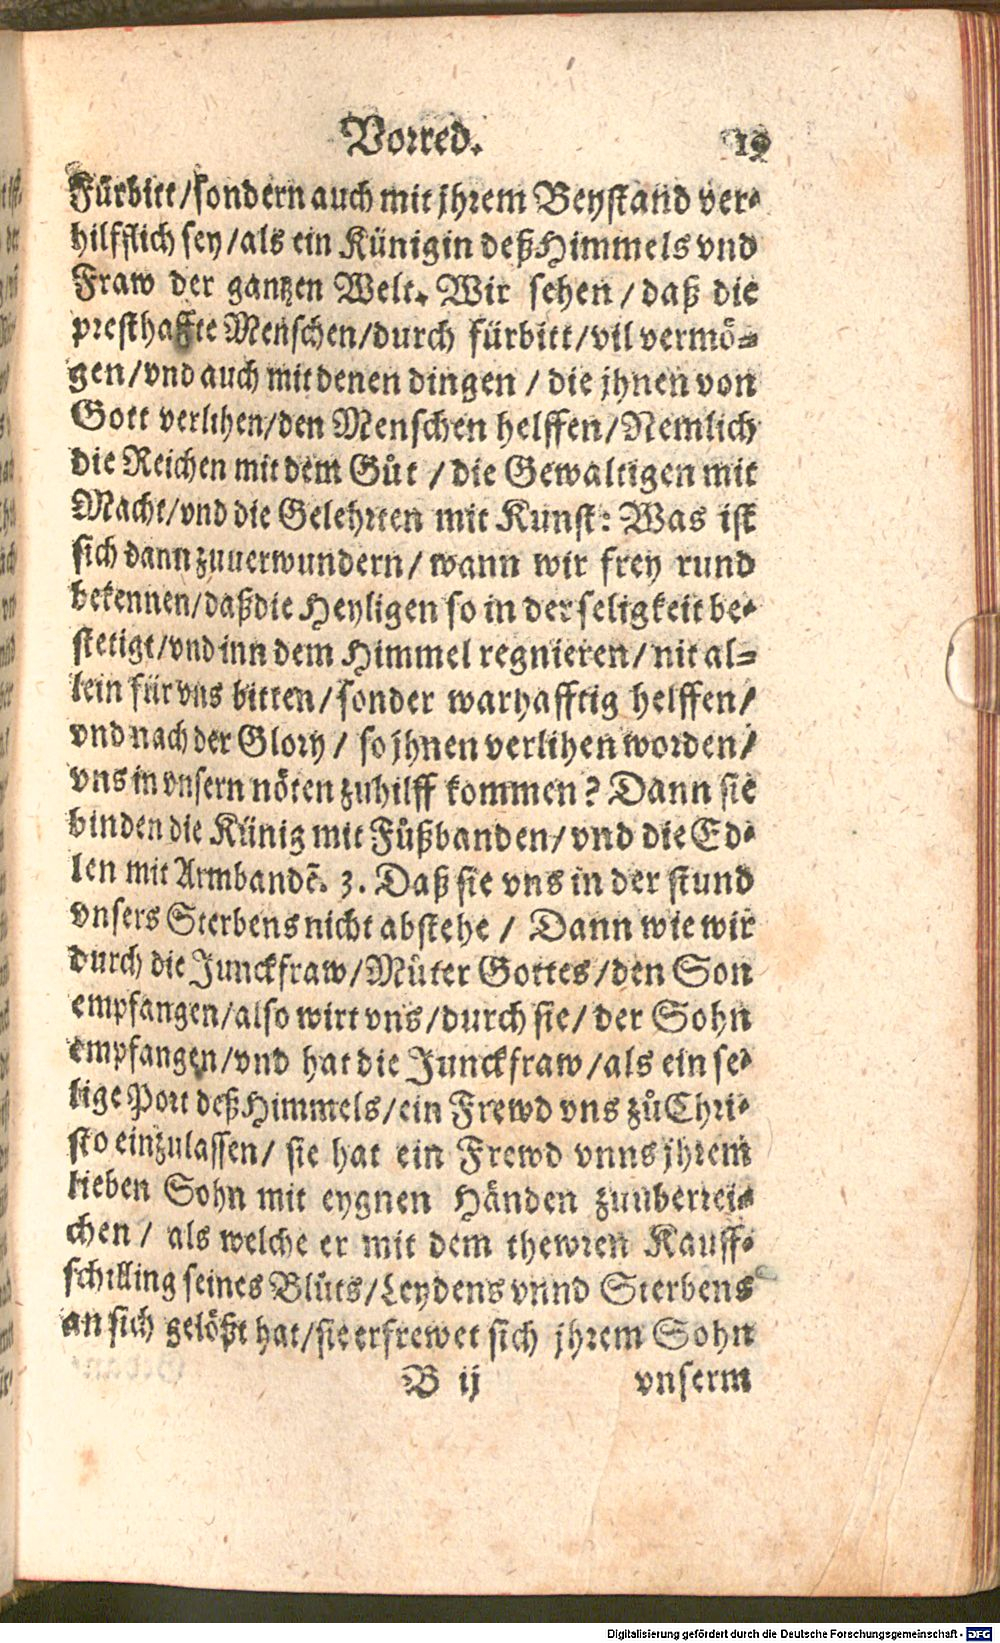 Vorred. 19
Fürbitt/sondern auch mit jhrem Beystand ver-
hilfflich sey/als ein Künigin deß Himmels vnd
Fraw der gantzen Welt. Wir sehen/daß die
presthaffte Menschen/durch fürbitt/vil vermö-
gen/vnd auch mit denen dingen/die jhnen von
Gott verlihen/den Menschen helffen/Nemlich
die Reichen mit dem Gůt/die Gewaltigen mit
Macht/vnd die Gelehrten mit Kunst: Was ist
sich dann zuuerwundern/wann wir frey rund
bekennen/daß die Heyligen so in der seligkeit be-
stetigt/vnd inn dem Himmel regnieren/nit al-
lein für vns bitten/sonder warhafftig helffen/
vnd nach der Glory/so jhnen verlihen worden/
vns in vnsern nöten zuhilff kommen? Dann sie
binden die Künig mit Fůßbanden/vnd die Ed-
len mit Armbandē. 3. Daß sie vns in der stund
vnsers Sterbens nicht abstehe/Dann wie wir
durch die Junckfraw/Můter Gottes/den Son
empfangen/also wirt vns/durch sie/der Sohn
empfangen/vnd hat die Junckfraw/als ein se-
lige Port deß Himmels/ein Frewd vns zů Chri-
sto einzulassen/sie hat ein Frewd vnns jhrem
lieben Sohn mit eygnen Händen zuuberrei-
chen/als welche er mit dem thewren Kauff-
schilling seines Blůts/Leydens vnnd Sterbens
an sich gelößt hat/sie erfrewet sich jhrem Sohn
B ij vnserm
Digitalisierung gefördert durch die Deutsche Forschungsgemeinschaft - DFG